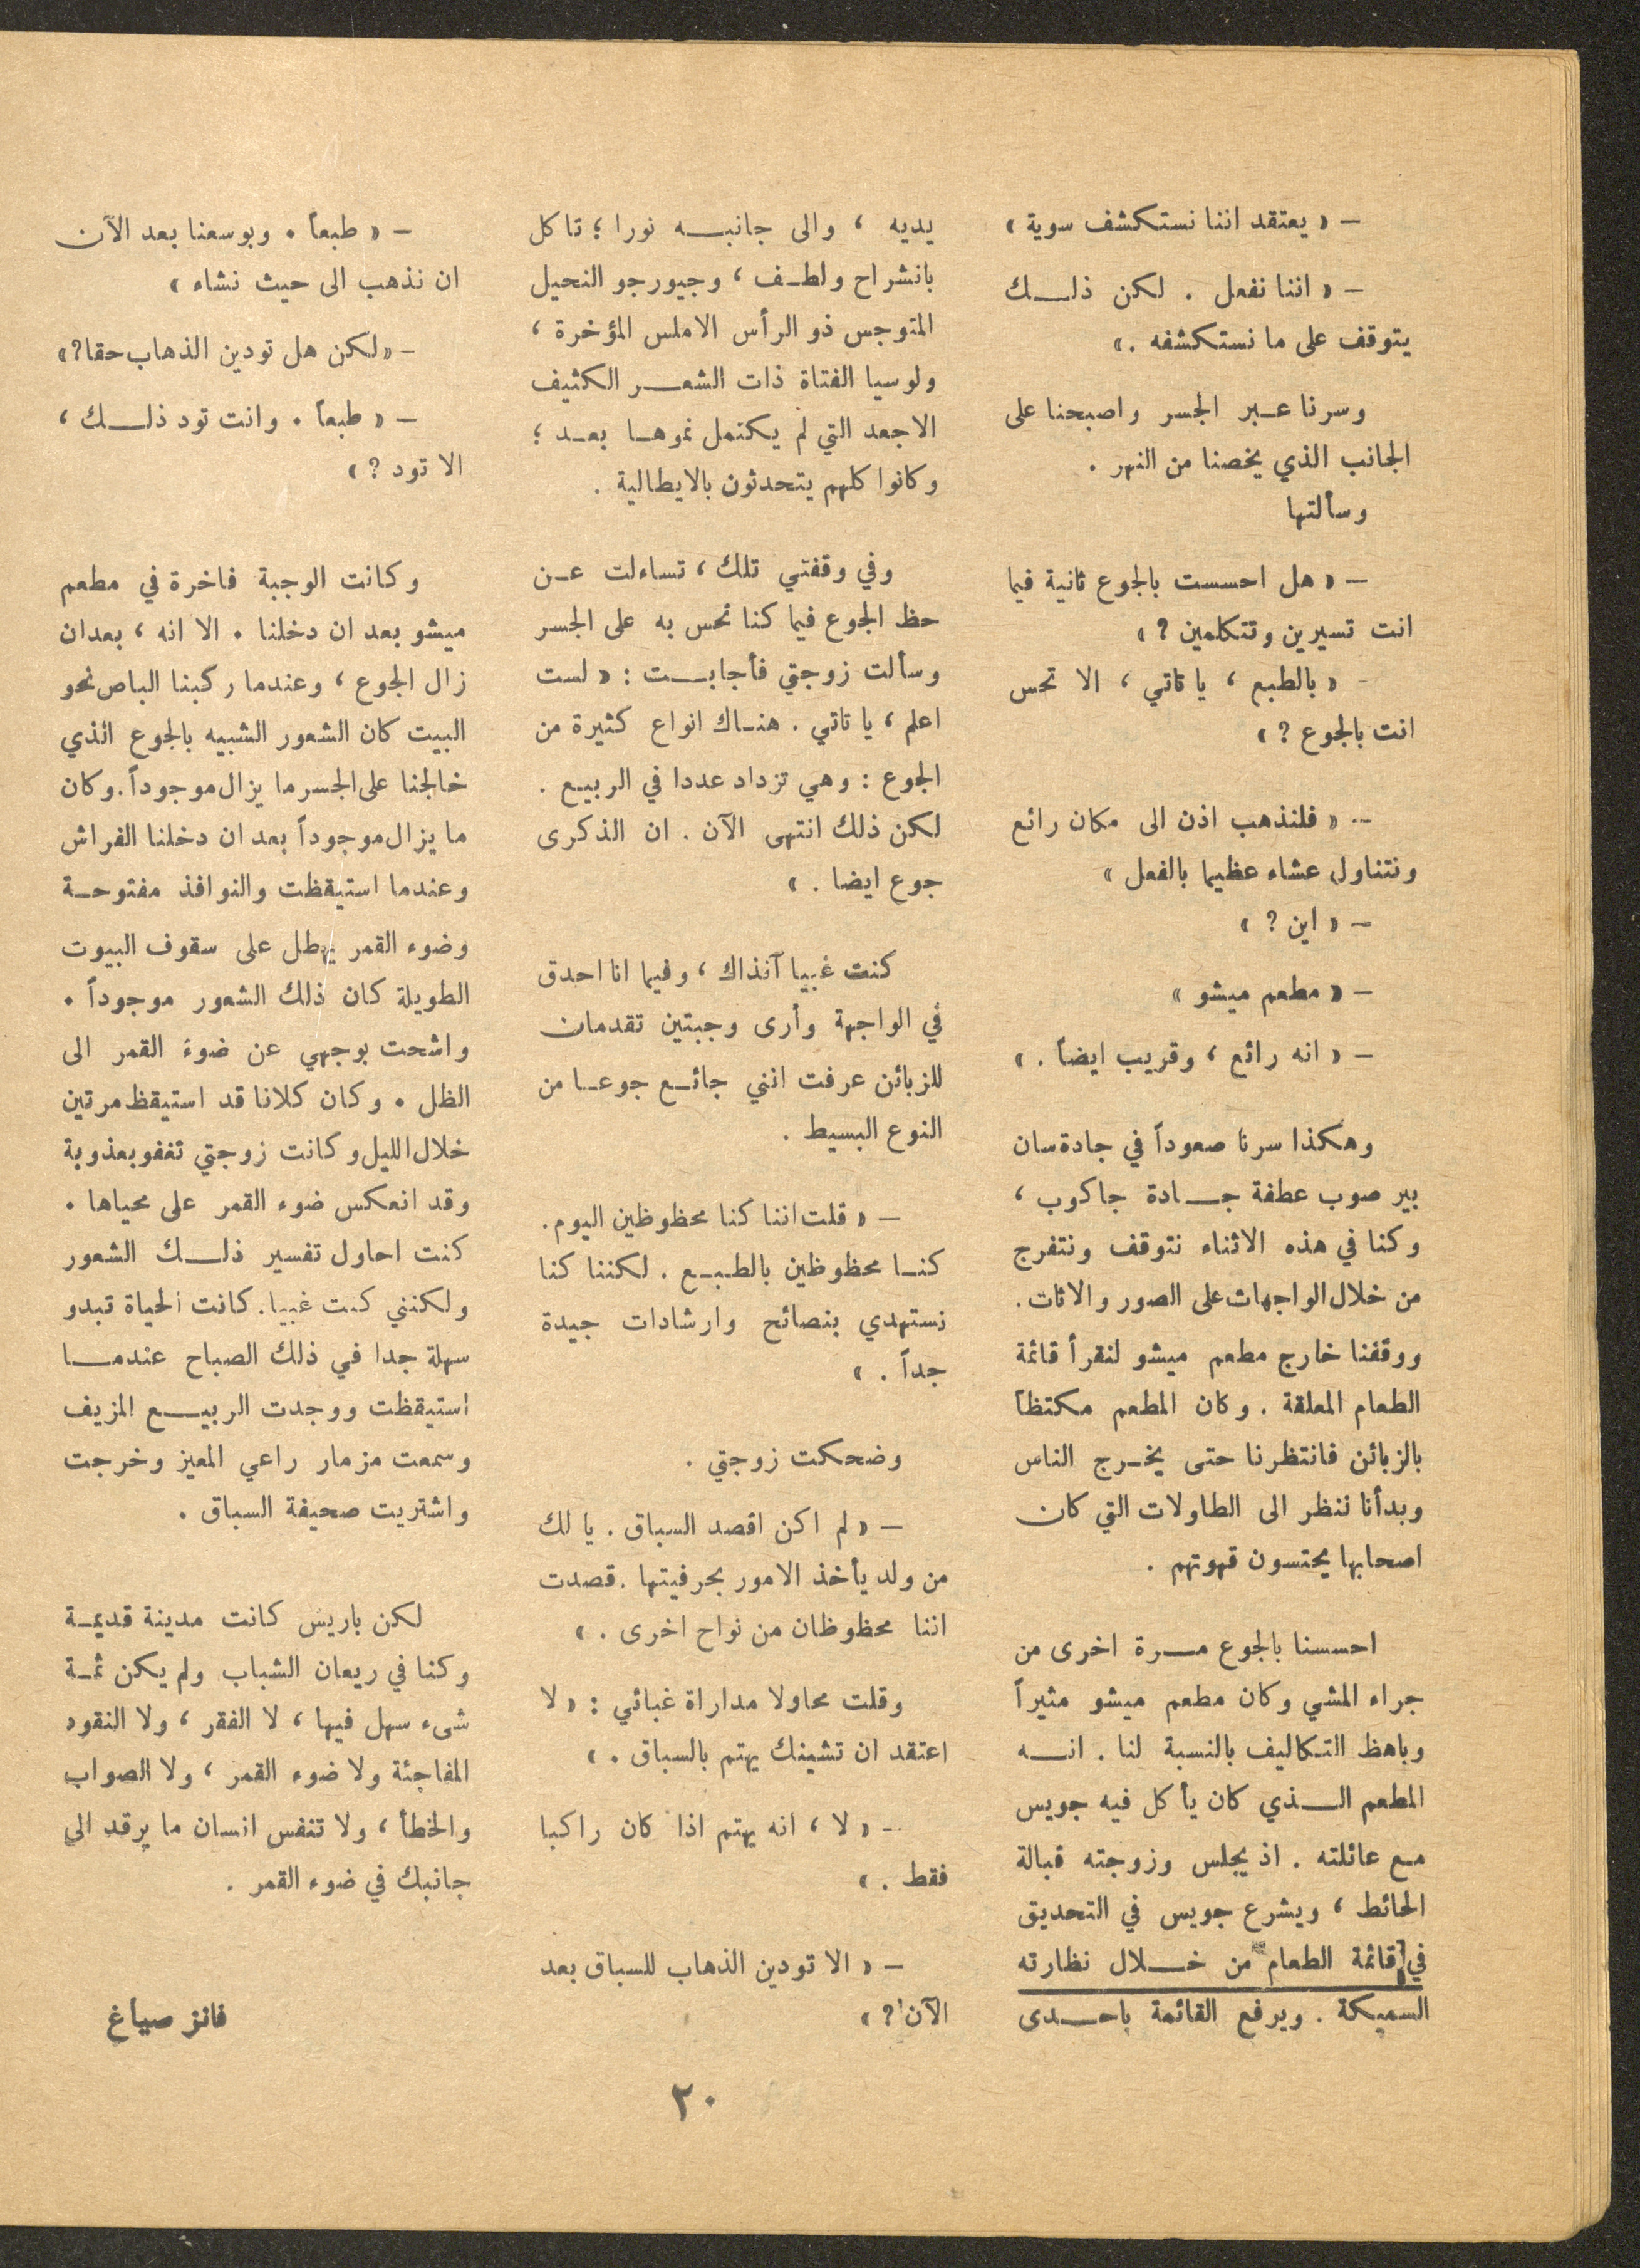 – « يعتقد اننا نستكشف سوية »
– « اننا نفعل . لكن ذلـــك
يتوقف على ما نستكشفه . »
وسرنا عـبر الجسر واصبحنا على
الجانب الذي يخصنا من النهر .
وسألتها
– « هل احسست بالجوع ثانية فيما
انت تسيرين وتتكلمين ? »
– « بالطبع ، يا تاتي ، الا تحس
انت بالجوع ? »
– « فلنذهب اذن الى مكان رائع
ونتناول عشاء عظيما بالفعل »
– « اين ? »
– « مطعم ميشو »
– « انه رائع ، وقريب ايضاً . »
وهكذا سرنا صعوداً في جادة سان
بير صوب عطفة جــادة جاكوب ،
وكنا في هذه الاثناء نتوقف ونتفرج
من خلال الواجهات على الصور والاثاث .
ووقفنا خارج مطعم ميشو لنقرأ قائمة
الطعام المعلقة . وكان المطعم مكتظاً
بالزبائن فانتظرنا حتى يخـرج الناس
وبدأنا ننظر الى الطاولات التي كان
اصحابها يحتسون قهوتهم .
احسسنا بالجوع مـــرة اخرى من
جراء المشي وكان مطعم ميشو مثيراً
وباهظ التكاليف بالنسبة لنا . انـــه
المطعم الـــذي كان يأكل فيه جويس
مـع عائلته . اذ يجلس وزوجته قبالة
الحائط ، ويشرع جويس في التحديق
في قائمة الطعام من خـــلال نظارته
السميكة . ويرفع القائمة باحـــدى
يديه ، والى جانبـــه نورا ؛ تاكل
بانشراح ولطـف ، وجيورجو النحيل
المتوجس ذو الرأس الاملس المؤخرة ،
ولوسيا الفتاة ذات الشعـــر الكثيف
الاجعد التي لم يكتمل نموهـا بعـد ؛
وكانوا كلهم يتحدثون بالايطالية .
وفي وقفتي تلك ، تساءلت عـن
حظ الجوع فيما كنا نحس به على الجسر
وسألت زوجتي فأجابـــت : « لست
اعلم ، يا تاتي . هنـاك انواع كثيرة من
الجوع : وهي تزداد عددا في الربيـع .
لكن ذلك انتهى الآن . ان الذكرى
جوع ايضا . »
كنت غبيا آنذاك ، وفيما انا احدق
في الواجهة وأرى وجبتين تقدمان
للزبائن عرفت انني جائـع جوعـا من
النوع البسيط .
– « قلت اننا كنا محظوظين اليوم .
كنـا محظوظين بالطبـع . لكننا كنا
نستهدي بنصائح وارشادات جيدة
جداً . »
وضحكت زوجتي .
– « لم اكن اقصد السباق . يا لك
من ولد يأخذ الامور بحرفيتها . قصدت
اننا محظوظان من نواح اخرى . »
وقلت محاولا مداراة غبائي : « لا
اعتقد ان تشينك يهتم بالسباق . »
– « لا ، انه يهتم اذا كان راكبا
فقط . »
– « الا تودين الذهاب للسباق بعد
الآن ? »
– « طبعاً . وبوسعنا بعد الآن
ان نذهب الى حيث نشاء »
– « لكن هل تودين الذهاب حقا ? »
– « طبعاً . وانت تود ذلـــك ،
الا تود ? »
وكانت الوجبة فاخرة في مطعم
ميشو بعد ان دخلنا . الا انه ، بعد ان
زال الجوع ، وعندما ركبنا الباص نحو
البيت كان الشعور الشبيه بالجوع الذي
خالجنا على الجسر ما يزال موجوداً . وكان
ما يزال موجوداً بعد ان دخلنا الفراش
وعندما استيقظت والنوافذ مفتوحـة
وضوء القمر يهطل على سقوف البيوت
الطويلة كان ذلك الشعور موجوداً .
واشحت بوجهي عن ضوء القمر الى
الظل . وكان كلانا قد استيقظ مرتين
خلال الليل وكانت زوجتي تغفو بعذوبة
وقد انعكس ضوء القمر على محياها .
كنت احاول تفسير ذلـــك الشعور
ولكنني كنت غبيا . كانت الحياة تبدو
سهلة جدا في ذلك الصباح عندمـــا
استيقظت ووجدت الربيـــع المزيف
وسمعت مزمار راعي المعيز وخرجت
واشتريت صحيفة السباق .
لكن باريس كانت مدينة قديمـة
وكنا في ريعان الشباب ولم يكن ثمـة
شىء سهل فيها ، لا الفقر ، ولا النقود
المفاجئة ولا ضوء القمر ، ولا الصواب
والخطأ ، ولا تنفس انسان ما يرقد الى
جانبك في ضوء القمر .
فائز صياغ
٢٠